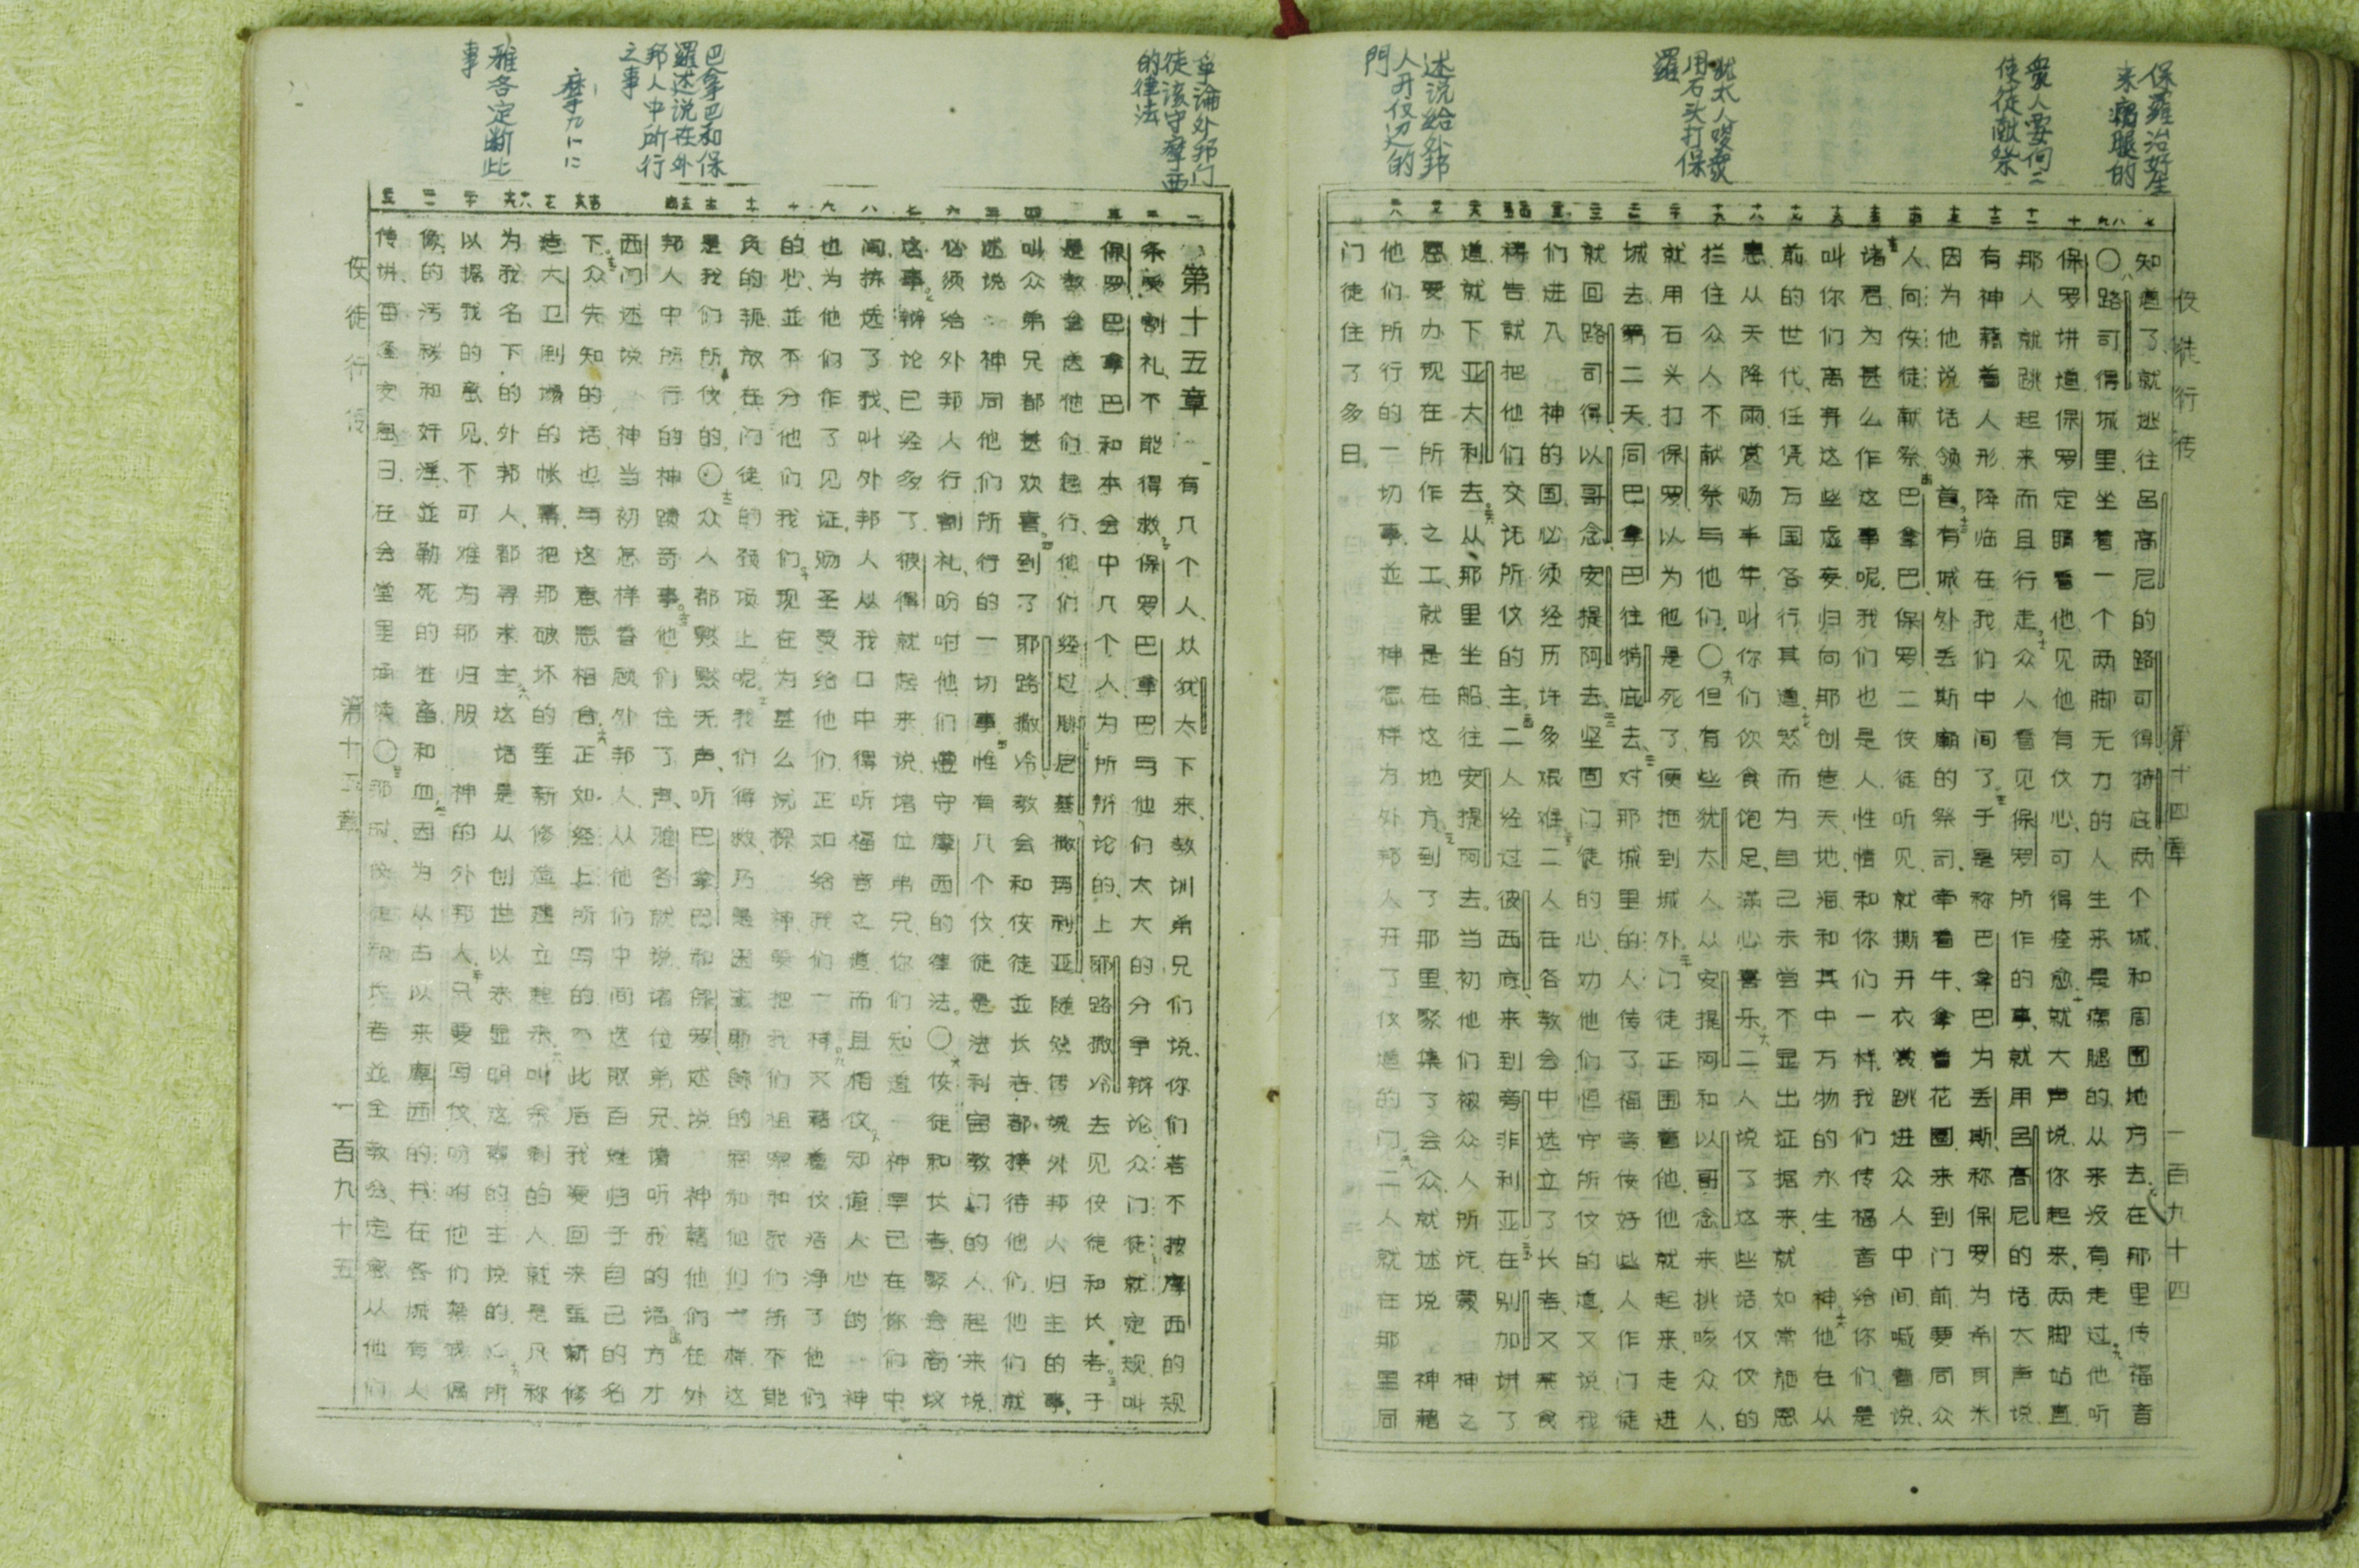 保羅治好生
来瘸腿的
衆人要向二
使徒献祭
犹太人唆衆
用石头打保
羅
述说给外邦
人开仅边的
門
使徒行传 第十四章 一百九十四
知道了、就逃往吕高尼的路可得特庇两个城、和周围地方去、在那里传福音
〇路可得城里、坐着一个两脚无力的人、生来是瘸腿的、从来没有走过、他听
保罗讲道、保罗定睛看他、见他有仗心、可得痊愈、就大声说、你起来、两脚站直
那人就跳起来、而且行走、众人看见保罗所作的事、就用吕高尼的话、大声说
有神藉着人形降临在我们中间了、于是称巴拿巴为丢斯、称保罗为希耳米
因为他说话领首、有城外丢斯庙的祭司、牵着牛、拿着花圈、来到门前、要同众
人、向使徒献祭、巴拿巴保罗二使徒听见、就撕开衣裳、跳进众人中间、喊着说、
诸君、为甚么作这事呢、我们也是人、性情和你们一样、我们传福音给你们、是
叫你们离弃这些虚妄、归向那创造天、地、海、和其中万物的永生 神、他在从
前的世代、任凭万国各行其道、然而为自己未尝不显出证据来、就如常施恩
惠、从天降雨、赏赐丰年、叫你们饮食饱足、满心喜乐、二人说了这些话、仅仅的
拦住众人不献祭与他们、〇但有些犹太人、从安提阿和以哥念来、挑唆众人、
就用石头打保罗、以为他是死了、便拖到城外、门徒正围着他、他就起来、走进
城去、第二天、同巴拿巴往特底去、对那城里的人传了福音、使好些人作门徒
就回路司得、以哥念、安提阿去、坚固门徒的心、劝他们恒守所仗的道、又说我
们进入 神的国、必须经历许多艰难、二人在各教会中选立了长老、又禁食
祷告、就把他们交讬所仗的主、二人经过彼西底、来到旁非利亚、在别加讲了
道、就下亚大利去、从那里坐船、往安提阿去、当初他们被众人所讬、蒙 神之
恩、要办现在所作之工、就是在这地方、到了那里、聚集了会众、就述说 神藉
他们所行的一切事、並 神怎样为外邦人开了仗道的门、二人就在那里同
门徒住了多日。
争論外邦门
徒该守摩西
的律法
巴拿巴和保
羅述说在外
邦人中所行
之事
摩九11 12
雅各定断此
事
第十五章 有几个人、从犹太下来、教训弟兄们说、你们若不按摩西的规
条受割礼、不能得救、保罗巴拿巴与他们大大的分争辩论、众门徒就定规、叫
保罗巴拿巴和本会中几个人、为所辩论的、上耶路撒冷去见使徒和长老、于
是教会送他们起行、他们经过腓尼基撒玛利亚、随处传说外邦人归主的事、
叫众弟兄都甚欢喜、到了耶路撒冷、教会和使徒並长老、都接待他们、他们就
述说 神同他们所行的一切事、惟有几个仗徒、是法利赛教门的人、起来说、
必须给外邦人行割礼、吩咐他们遵守摩西的律法。〇使徒和长老、聚会商议
这事、辩论已经多了、彼得就起来说、诸位弟兄、你们知道 神早已在你们中
间、拣选了我、叫外邦人从我口中得听福音之道、而且相仗、知道人心的 神
也为他们作了见证、赐圣灵给他们、正如给我们一样、又藉着仗洁净了他们
的心、並不分他们我们、现在为甚么试探 神、要把我们祖宗和我们所不能
负的轭、放在门徒的颈项上呢、我们得救、乃是因主耶稣的恩、和他们一样、这
是我们所仗的、〇众人都默默无声、听巴拿巴和保罗、述说 神藉他们在外
邦人中所行的神蹟奇事、他们住了声、雅各就说、诸位弟兄、请听我的话、方才
西门述说 神当初怎样眷顾外邦人、从他们中间选取百姓归于自己的名
下、众先知的话、也与这意思相合、正如经上所写的、此后我要回来、重新修
造大卫倒塌的帐幕、把那破坏的重新修造建立起来、叫余剩的人、就是凡称
为我名下的外邦人、都寻求主、这话是从创世以来显明这事的主说的、所
以据我的意见、不可难为那归服 神的外邦人、只要写仗吩咐他们、禁戒偶
像的污秽和奸淫、並勒死的牲畜、和血、因为从古以来、摩西的书、在各城有人
传讲、每逢安息日、在会堂里诵读〇那时、使徒和长老並全教会、定意从他们
使徒行传 第十五章 一百九十五